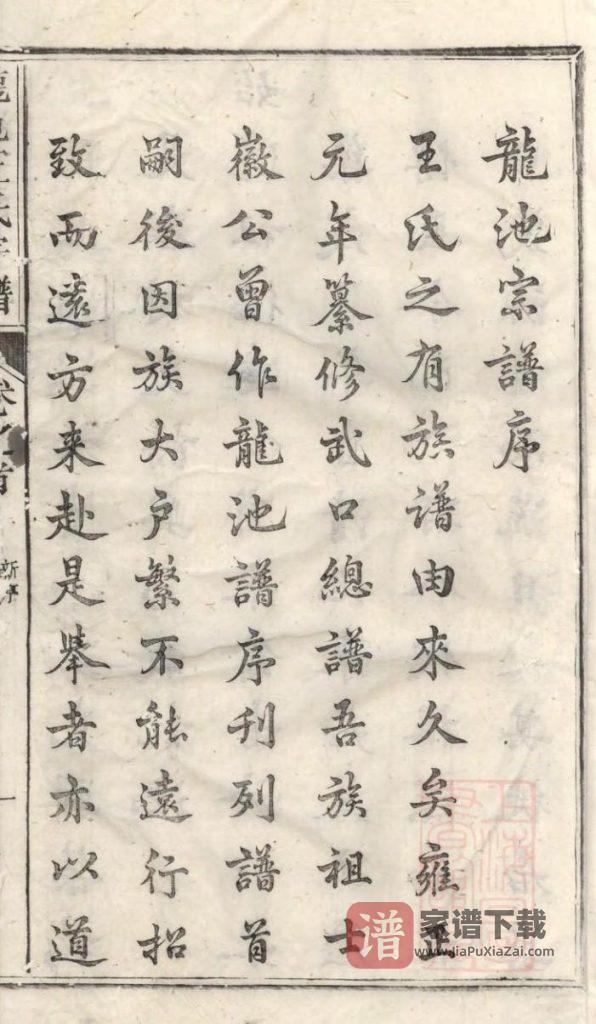 龍池宗譜序
王氏之有族譜由來久矣雍正
元年纂修武口總譜吾族祖士
徽公曾作龍池譜序刊列譜首
嗣後因族大户繁不能遠行招
致而遠方来赴是舉者亦以道
龍池王氏宗譜
卷之首
新序
一
谱
家谱下载
www.JiaPuXiaZai.com